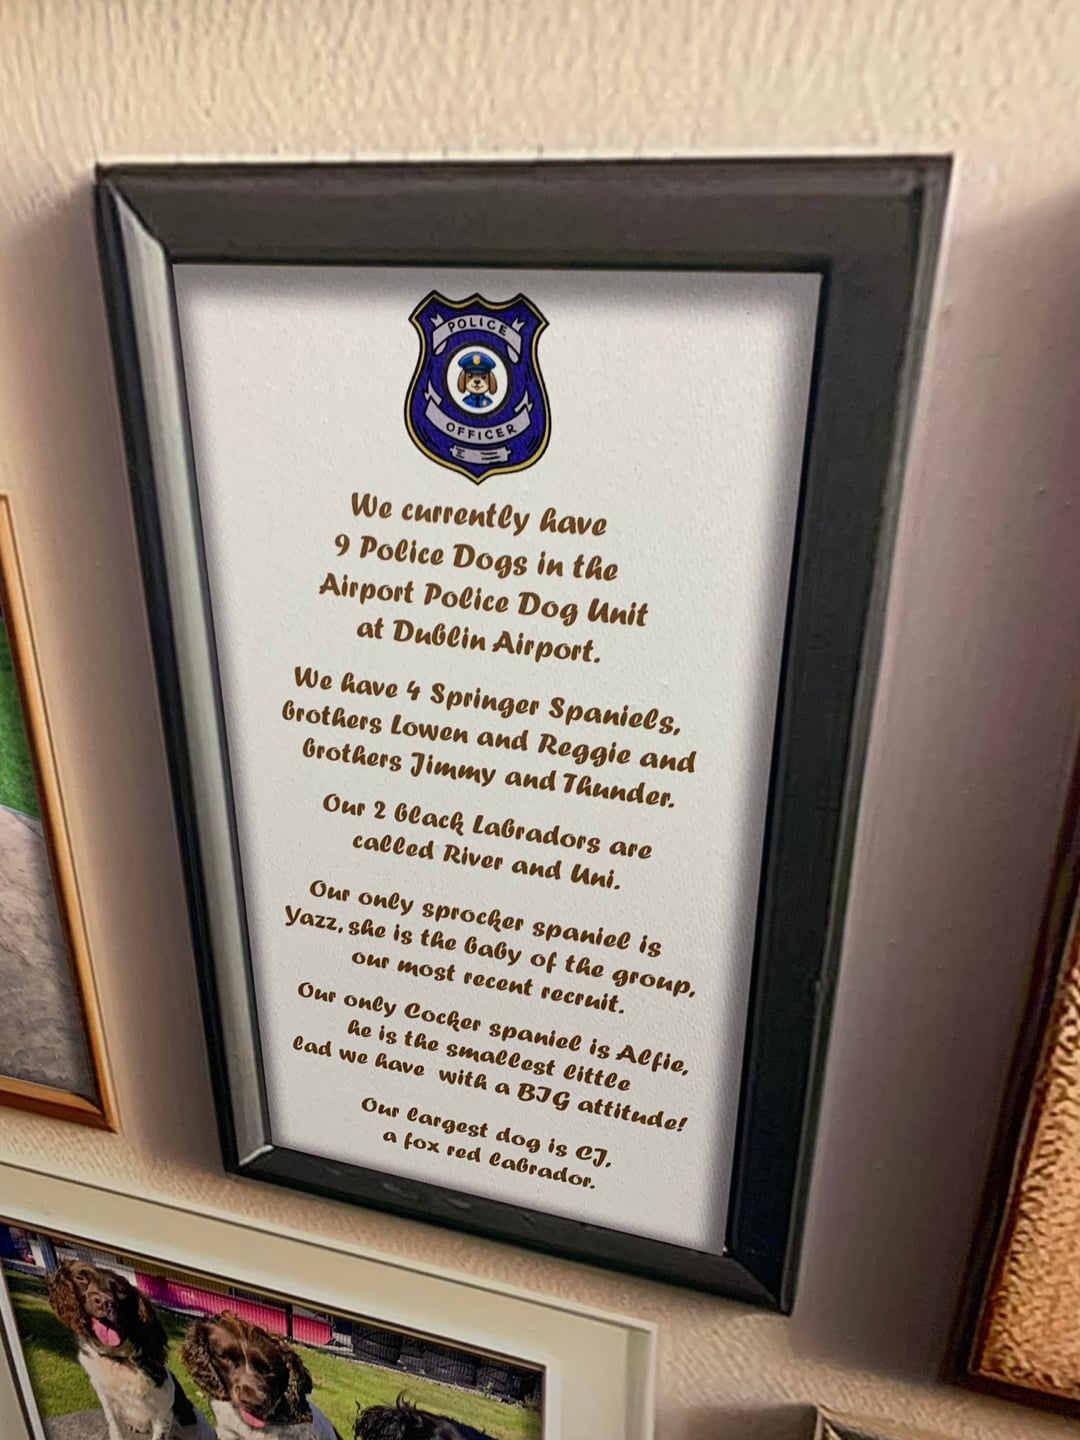 POLICE
OFFICER
We currently have
9 Police Dogs in the
Airport Police Dog Unit
at Dublin Airport.
We have 4 Springer Spaniels,
brothers Lowen and Reggie and
brothers Jimmy and Thunder.
Our 2 black Labradors are
called River and Uni.
Our only sprocker spaniel is
Yazz, she is the baby of the group,
our most recent recruit.
Our only Cocker spaniel is Alfie,
he is the smallest little
lad we have with a BIG attitude!
Our largest dog is CJ,
a fox red labrador.